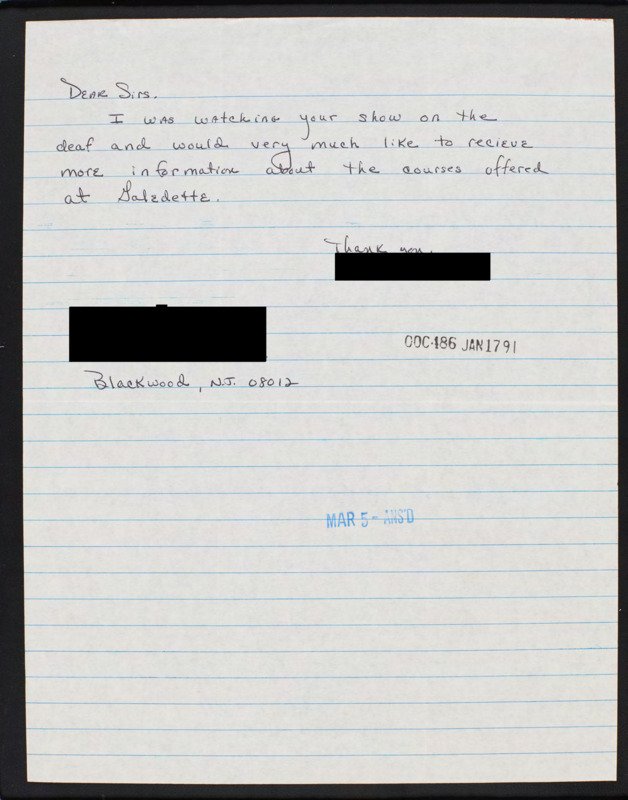 Dear Sirs.
I was watching your show on the
deaf and would very much like to recieve
more information about the courses offered
at Galedette.
Thank you.
OOC·186 JAN 17 91
Blackwood, N.J. 08012
MAR 5 - ANS'D